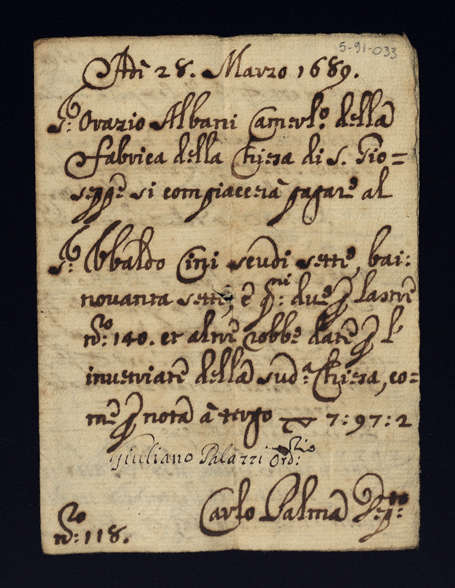 5-91-033
Adì 28. Marzo 1689.
Sr: Orazio Albani Camerlo. della
Fabrica della Chiesa di S. Gio=
seppe si compiacerà pagare al
Sr: Ubaldo Cini scudi sette, bai:
novanta sette, e qni: due p lastre
no: 140. et altre robbe date p l'
invetriare della suda. Chiesa, co=
me p nota à tergo 7:97:2
Giuliano Palazzi
Carlo Palma
no: 118.